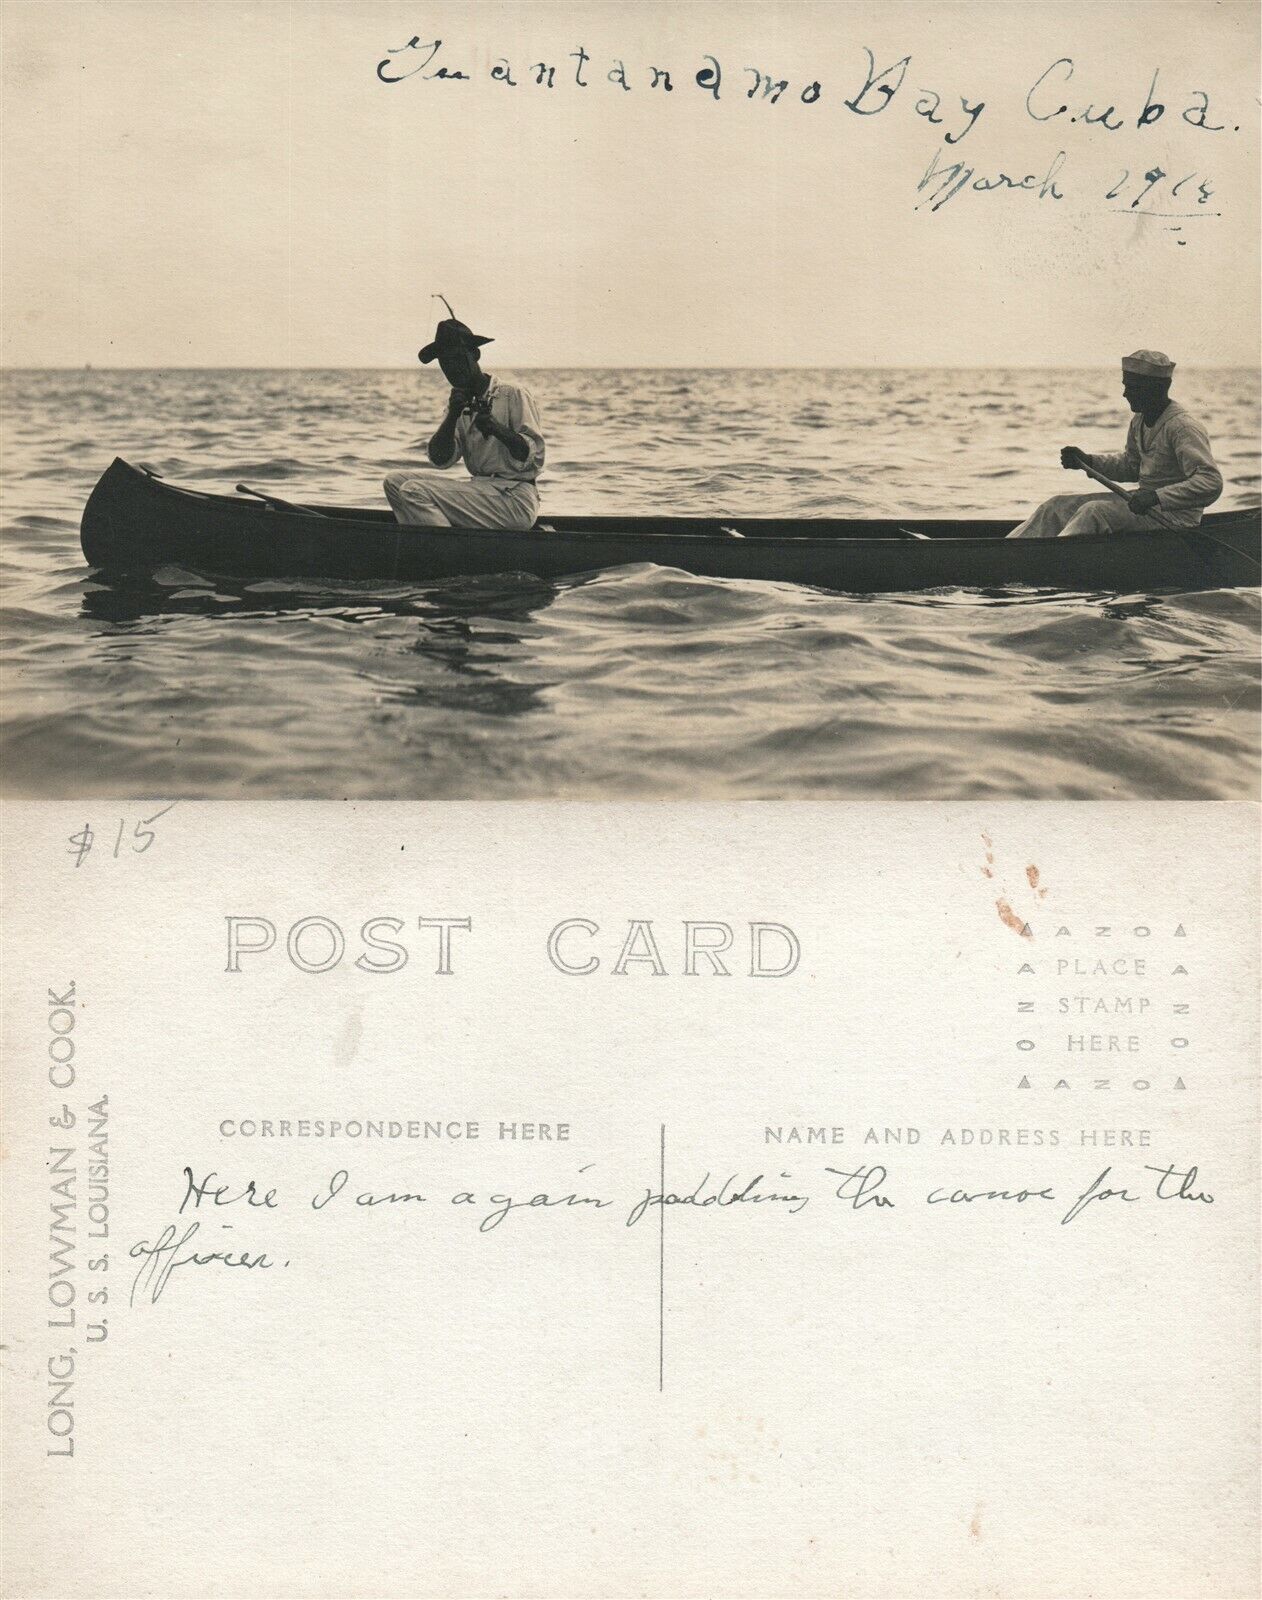 Guantanamo Bay Cuba.
March 1918
$15
POST CARD
AZO
PLACE
STAMP
HERE
AZO
LONG, LOWMAN & COOK.
U. S. S. LOUISIANA.
CORRESPONDENCE HERE
NAME AND ADDRESS HERE
Here I am again paddling the canoe for the
officer.